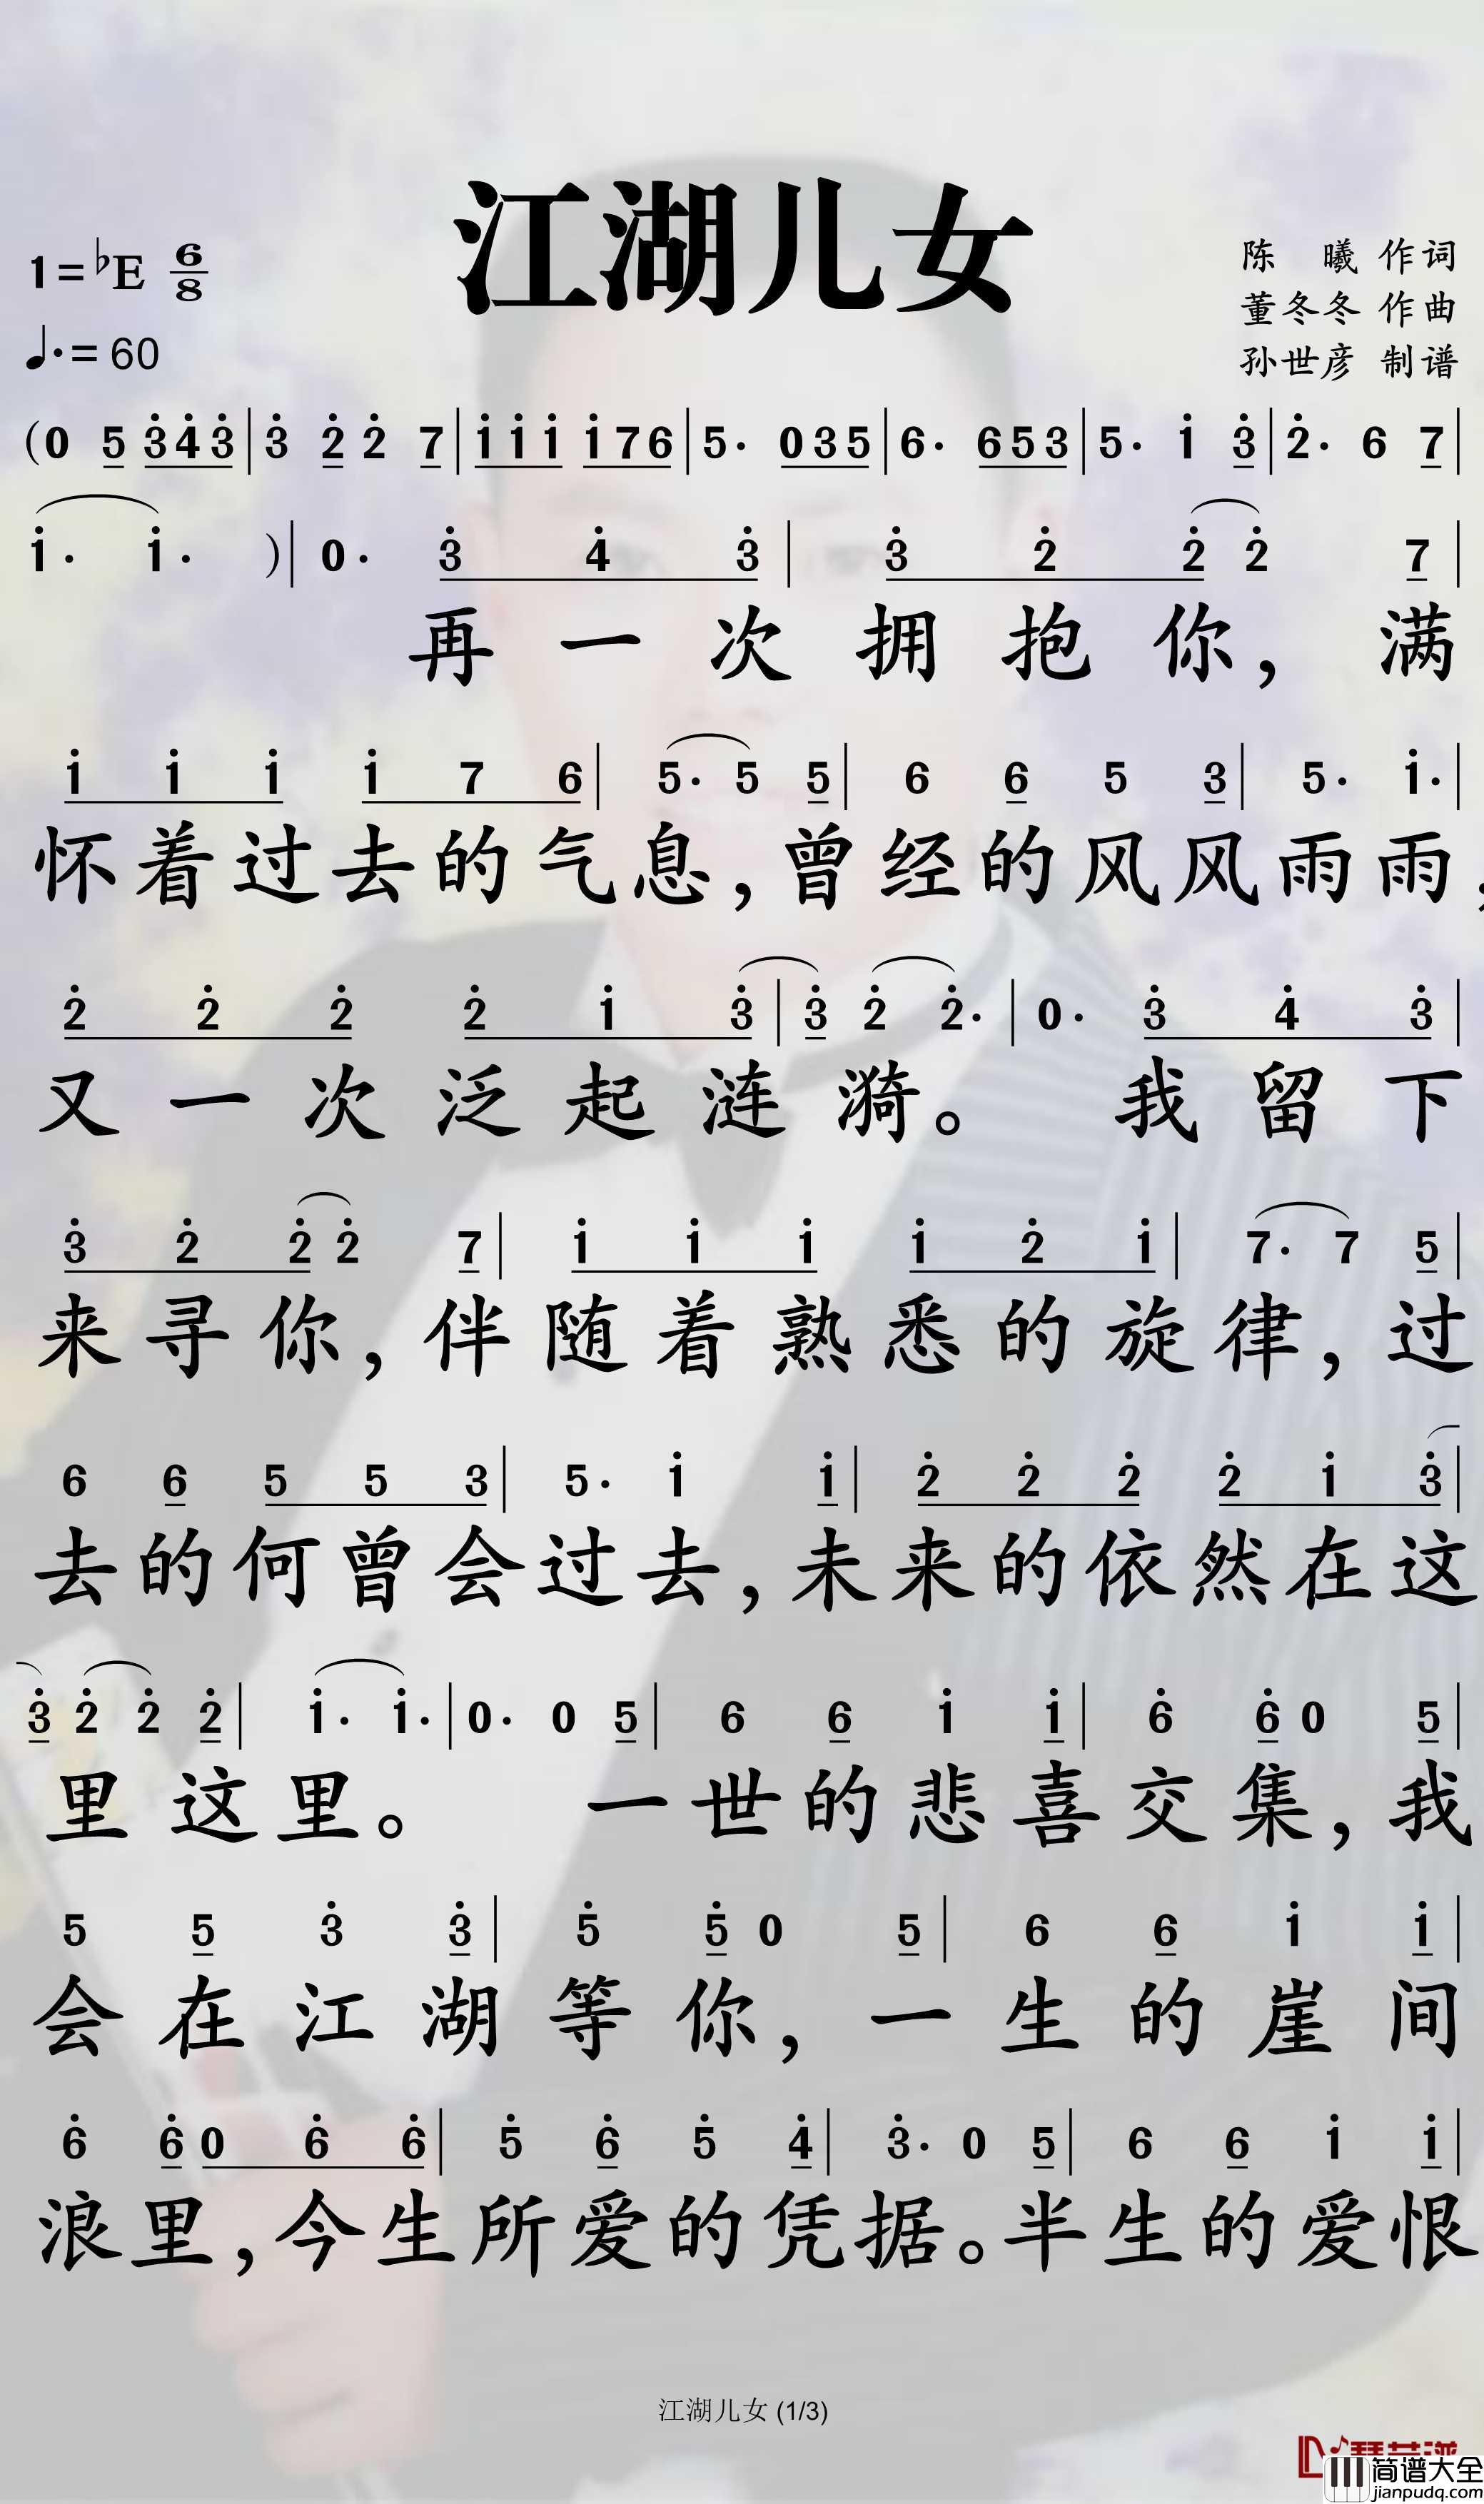 江湖儿女
1=♭E 6/8
♩.=60
陈 曦 作词
董冬冬 作曲
孙世彦 制谱
(0 5 3̇4̇3̇|3̇ 2̇ 2̇ 7|1̇1̇1̇ 1̇76|5· 035|6· 653|5· 1̇ 3̇|2̇· 6 7|
1̇· 1̇· )|0· 3̇ 4̇ 3̇|3̇ 2̇ 2̇ 2̇ 7|
再一次拥抱你，满
1̇ 1̇ 1̇ 1̇ 7 6|5· 5 5|6 6 5 3|5· 1̇·|
怀着过去的气息，曾经的风风雨雨，
2̇ 2̇ 2̇ 2̇ 1̇ 3̇|3̇ 2̇ 2̇·|0· 3̇ 4̇ 3̇|
又一次泛起涟漪。 我留下
3̇ 2̇ 2̇ 2̇ 7|1̇ 1̇ 1̇ 1̇ 2̇ 1̇|7· 7 5|
来寻你，伴随着熟悉的旋律，过
6 6 5 5 3|5· 1̇ 1̇|2̇ 2̇ 2̇ 2̇ 1̇ 3̇|
去的何曾会过去，未来的依然在这
3̇ 2̇ 2̇ 2̇|1̇· 1̇·|0· 0 5|6 6 1̇ 1̇|6̇ 6̇ 0 5|
里这里。 一世的悲喜交集，我
5 5 3̇ 3̇|5̇ 5̇ 0 5|6 6 1̇ 1̇|
会在江湖等你，一生的崖间
6̇ 6̇ 0 6̇ 6̇|5̇ 6̇ 5̇ 4̇|3̇· 0 5|6 6 1̇ 1̇|
浪里，今生所爱的凭据。半生的爱恨
江湖儿女 (1/3)
简谱大全
jianpudq.com